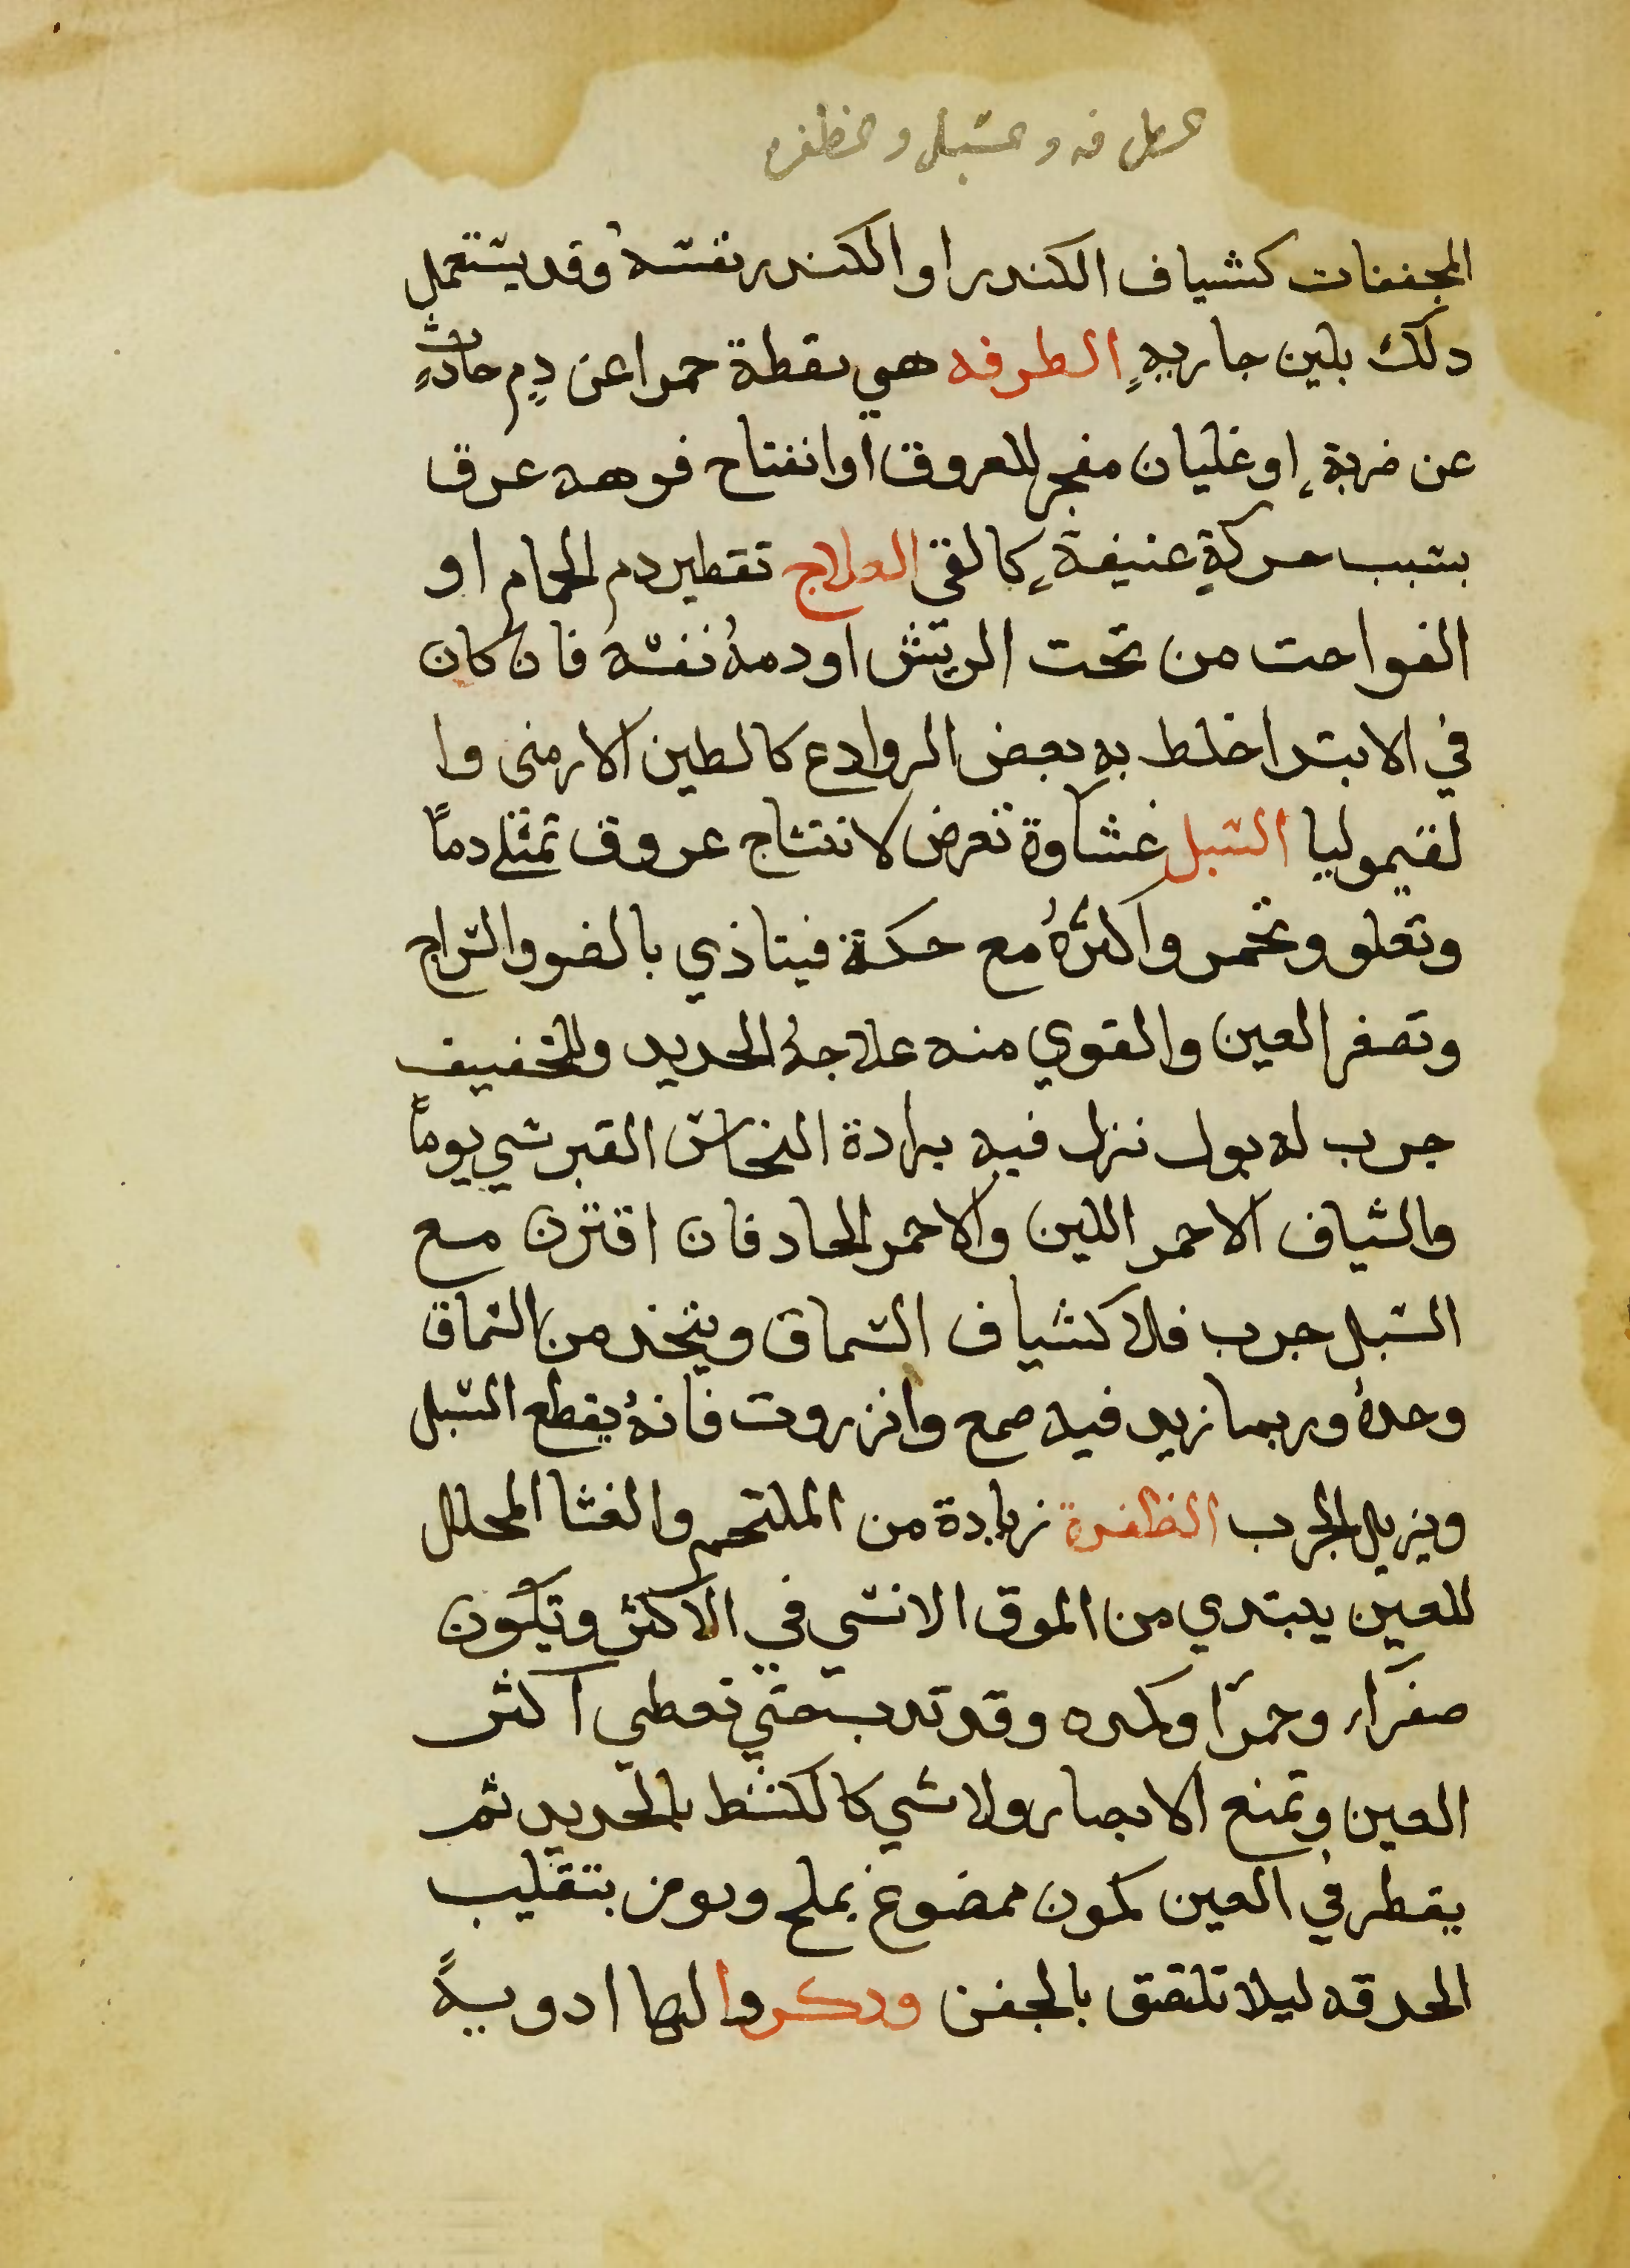 الطرفه والسبل والظفره
المجففات كشياف الكندر او الكندر نفسهُ وقد يستعمل
دلك بلبن جاريةٍ الطرفه هي نقطة حمرا عن دمٍ حادثٍ
عن ضربةٍ او غليان مفجر للعروق او انفتاح فوهه عرق
بسبب حركةٍ عنيفةٍ كالقي العلاج تقطير دم الحمام او
الفواحت من تحت الريش او دمهُ نفسه فان كان
في الابتدا خلط بهِ بعض الروادع كالطين الارمنى وا
لقيموليا السبل غشاوة تعرض لانتساج عروق تمتلي دماً
وتعلو وتحمر واكثرهُ مع حكة فيتاذي بالضو والسراج
وتصغر العين والقوي منه علاجهُ الحديد وللخفيف
جرب له بول نزل فيه برادة النحاس القبرسي يوماً
والشياف الاحمر اللين والاحمر الحاد فان اقترن مع
السبل جرب فلا كشياف السماق ويتخذ من السماق
وحدهُ وربما زيد فيه صمع وانزروت فانهُ يقطع السبل
ويزيل الجرب الظفرة زيادة من الملتحم والغشا المحلل
للعين يبتدي من الموق الانسي في الاكثر وتكون
صفرآء وحمرآ وكمده وقد تدب حتي تعطي اكثر
العين وتمنع الابصار ولا شي كالكشط بالحديد ثم
يقطر في العين كمون ممضوغ بملح ويومر بتقليب
الحدقه ليلا تلتصق بالجفن ودكروا لها ادويةً